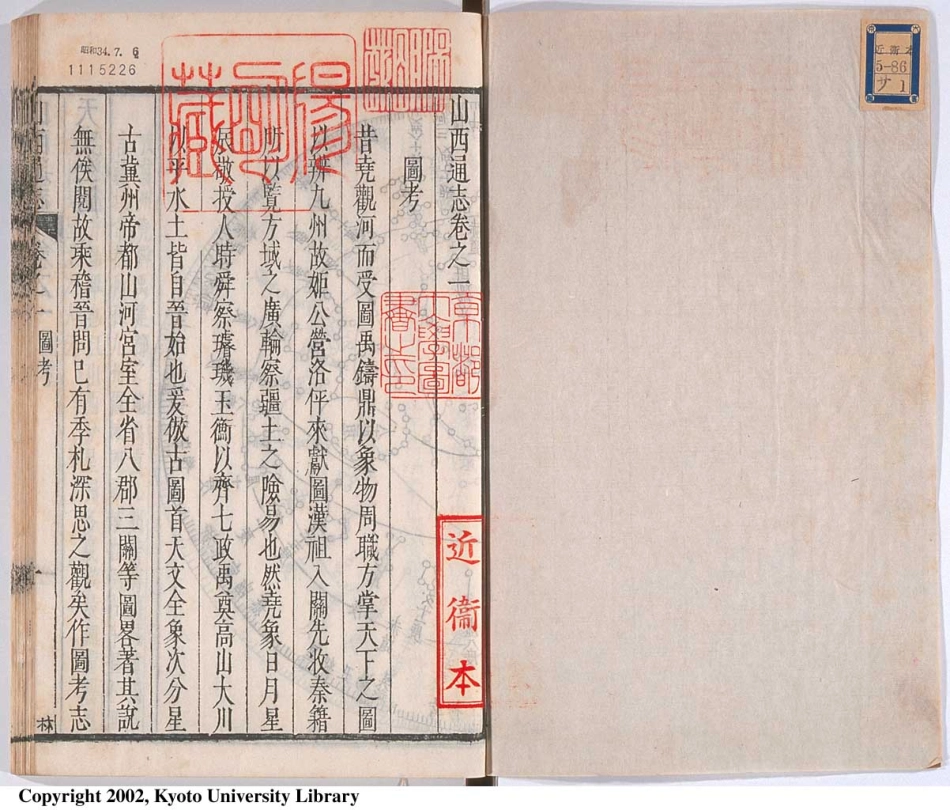 近衞本
5-86
サ 1
昭和34.7.6
1115226
陽明藏
京都
大學圖
書之印
近衞本
山西通志卷之一
圖考
昔堯觀河而受圖禹鑄鼎以象物周職方掌天下之圖
以辨九州故姬公營洛伻來獻圖漢祖入關先收秦籍
所以覧方域之廣輪察疆土之險易也然堯象日月星
辰敬授人時舜察璿璣玉衡以齊七政禹奠高山大川
以乎水土皆自晉始也爰倣古圖首天文全象次分星
古冀州帝都山河宮室全省八郡三關等圖畧著其說
無俟閱故乘稽晉問已有季札深思之觀矣作圖考志
山西通志
卷之一
圖考
一
林
Copyright 2002, Kyoto University Library